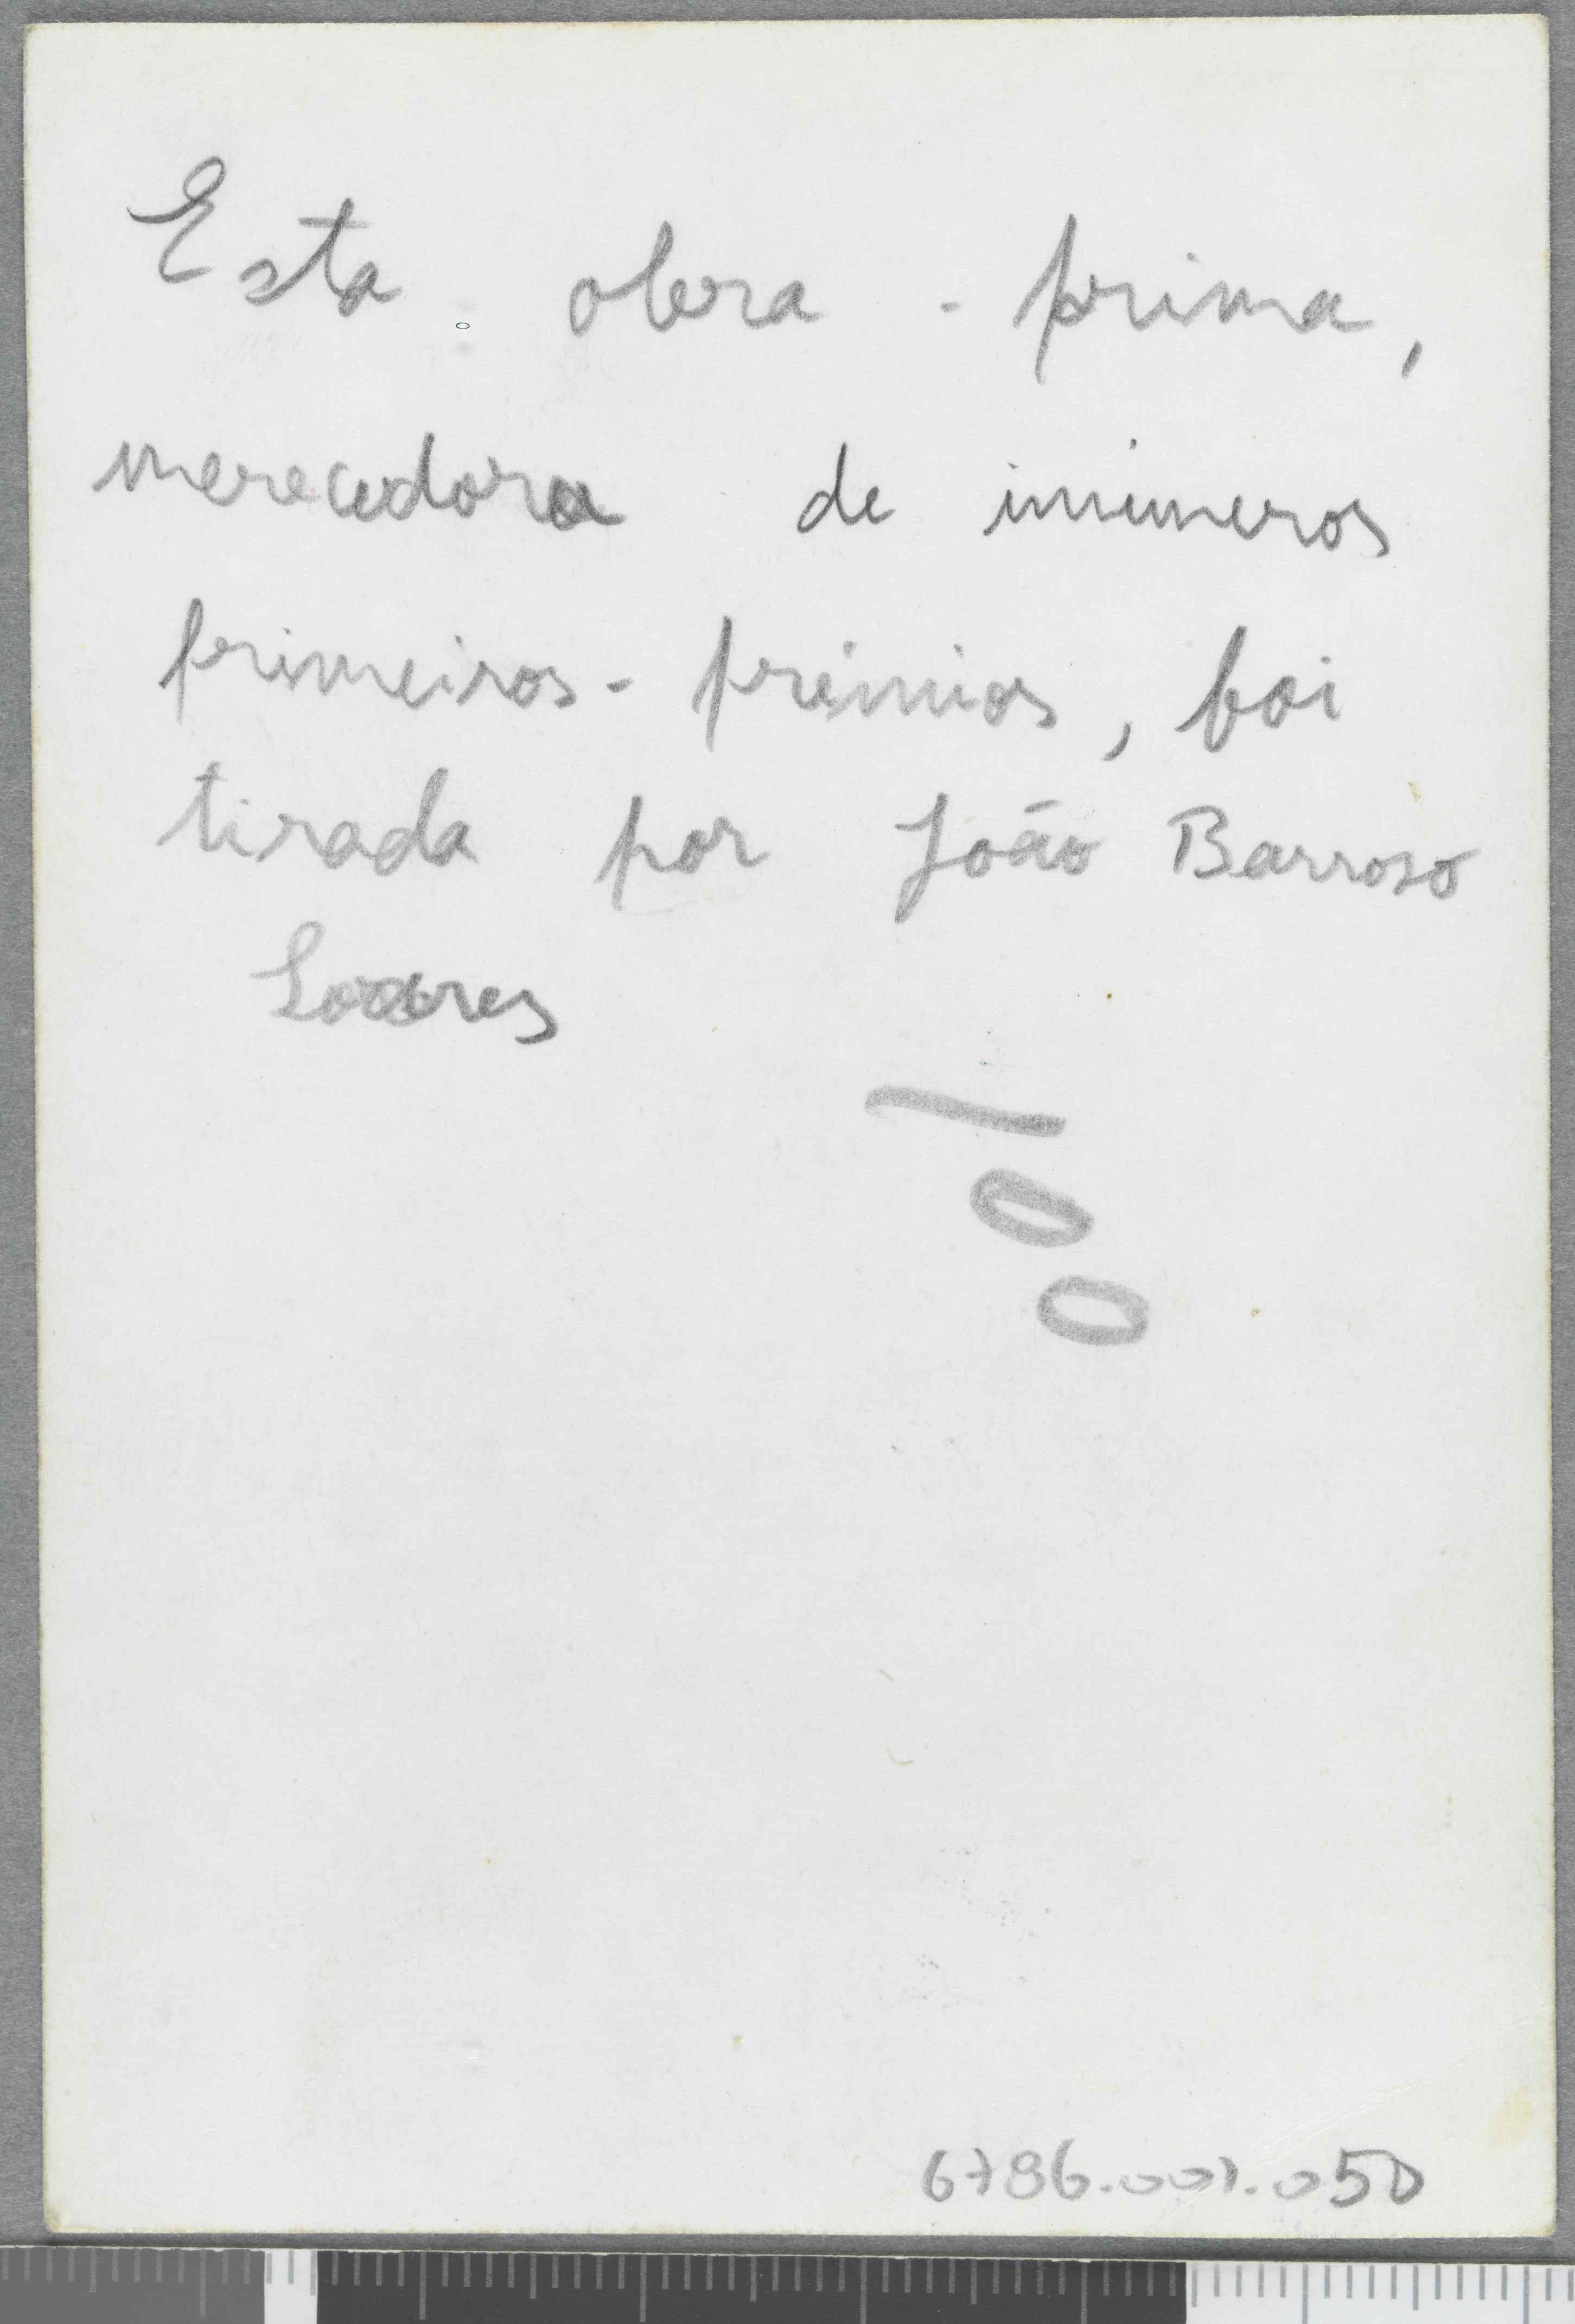 Esta obra-prima,
merecedora de inúmeros
primeiros-prémios, foi
tirada por João Barroso
Soares
100
6786.001.050